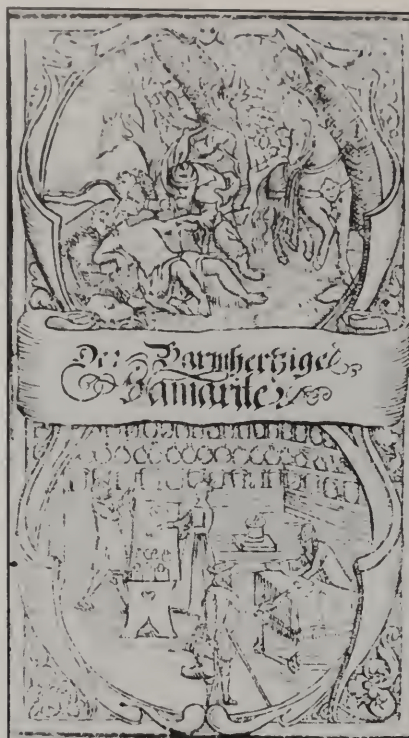 Der Barmhertzige
Samariter